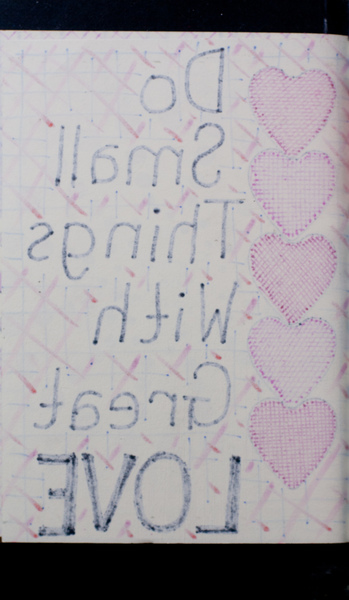 Do
Small
Things
With
Great
LOVE